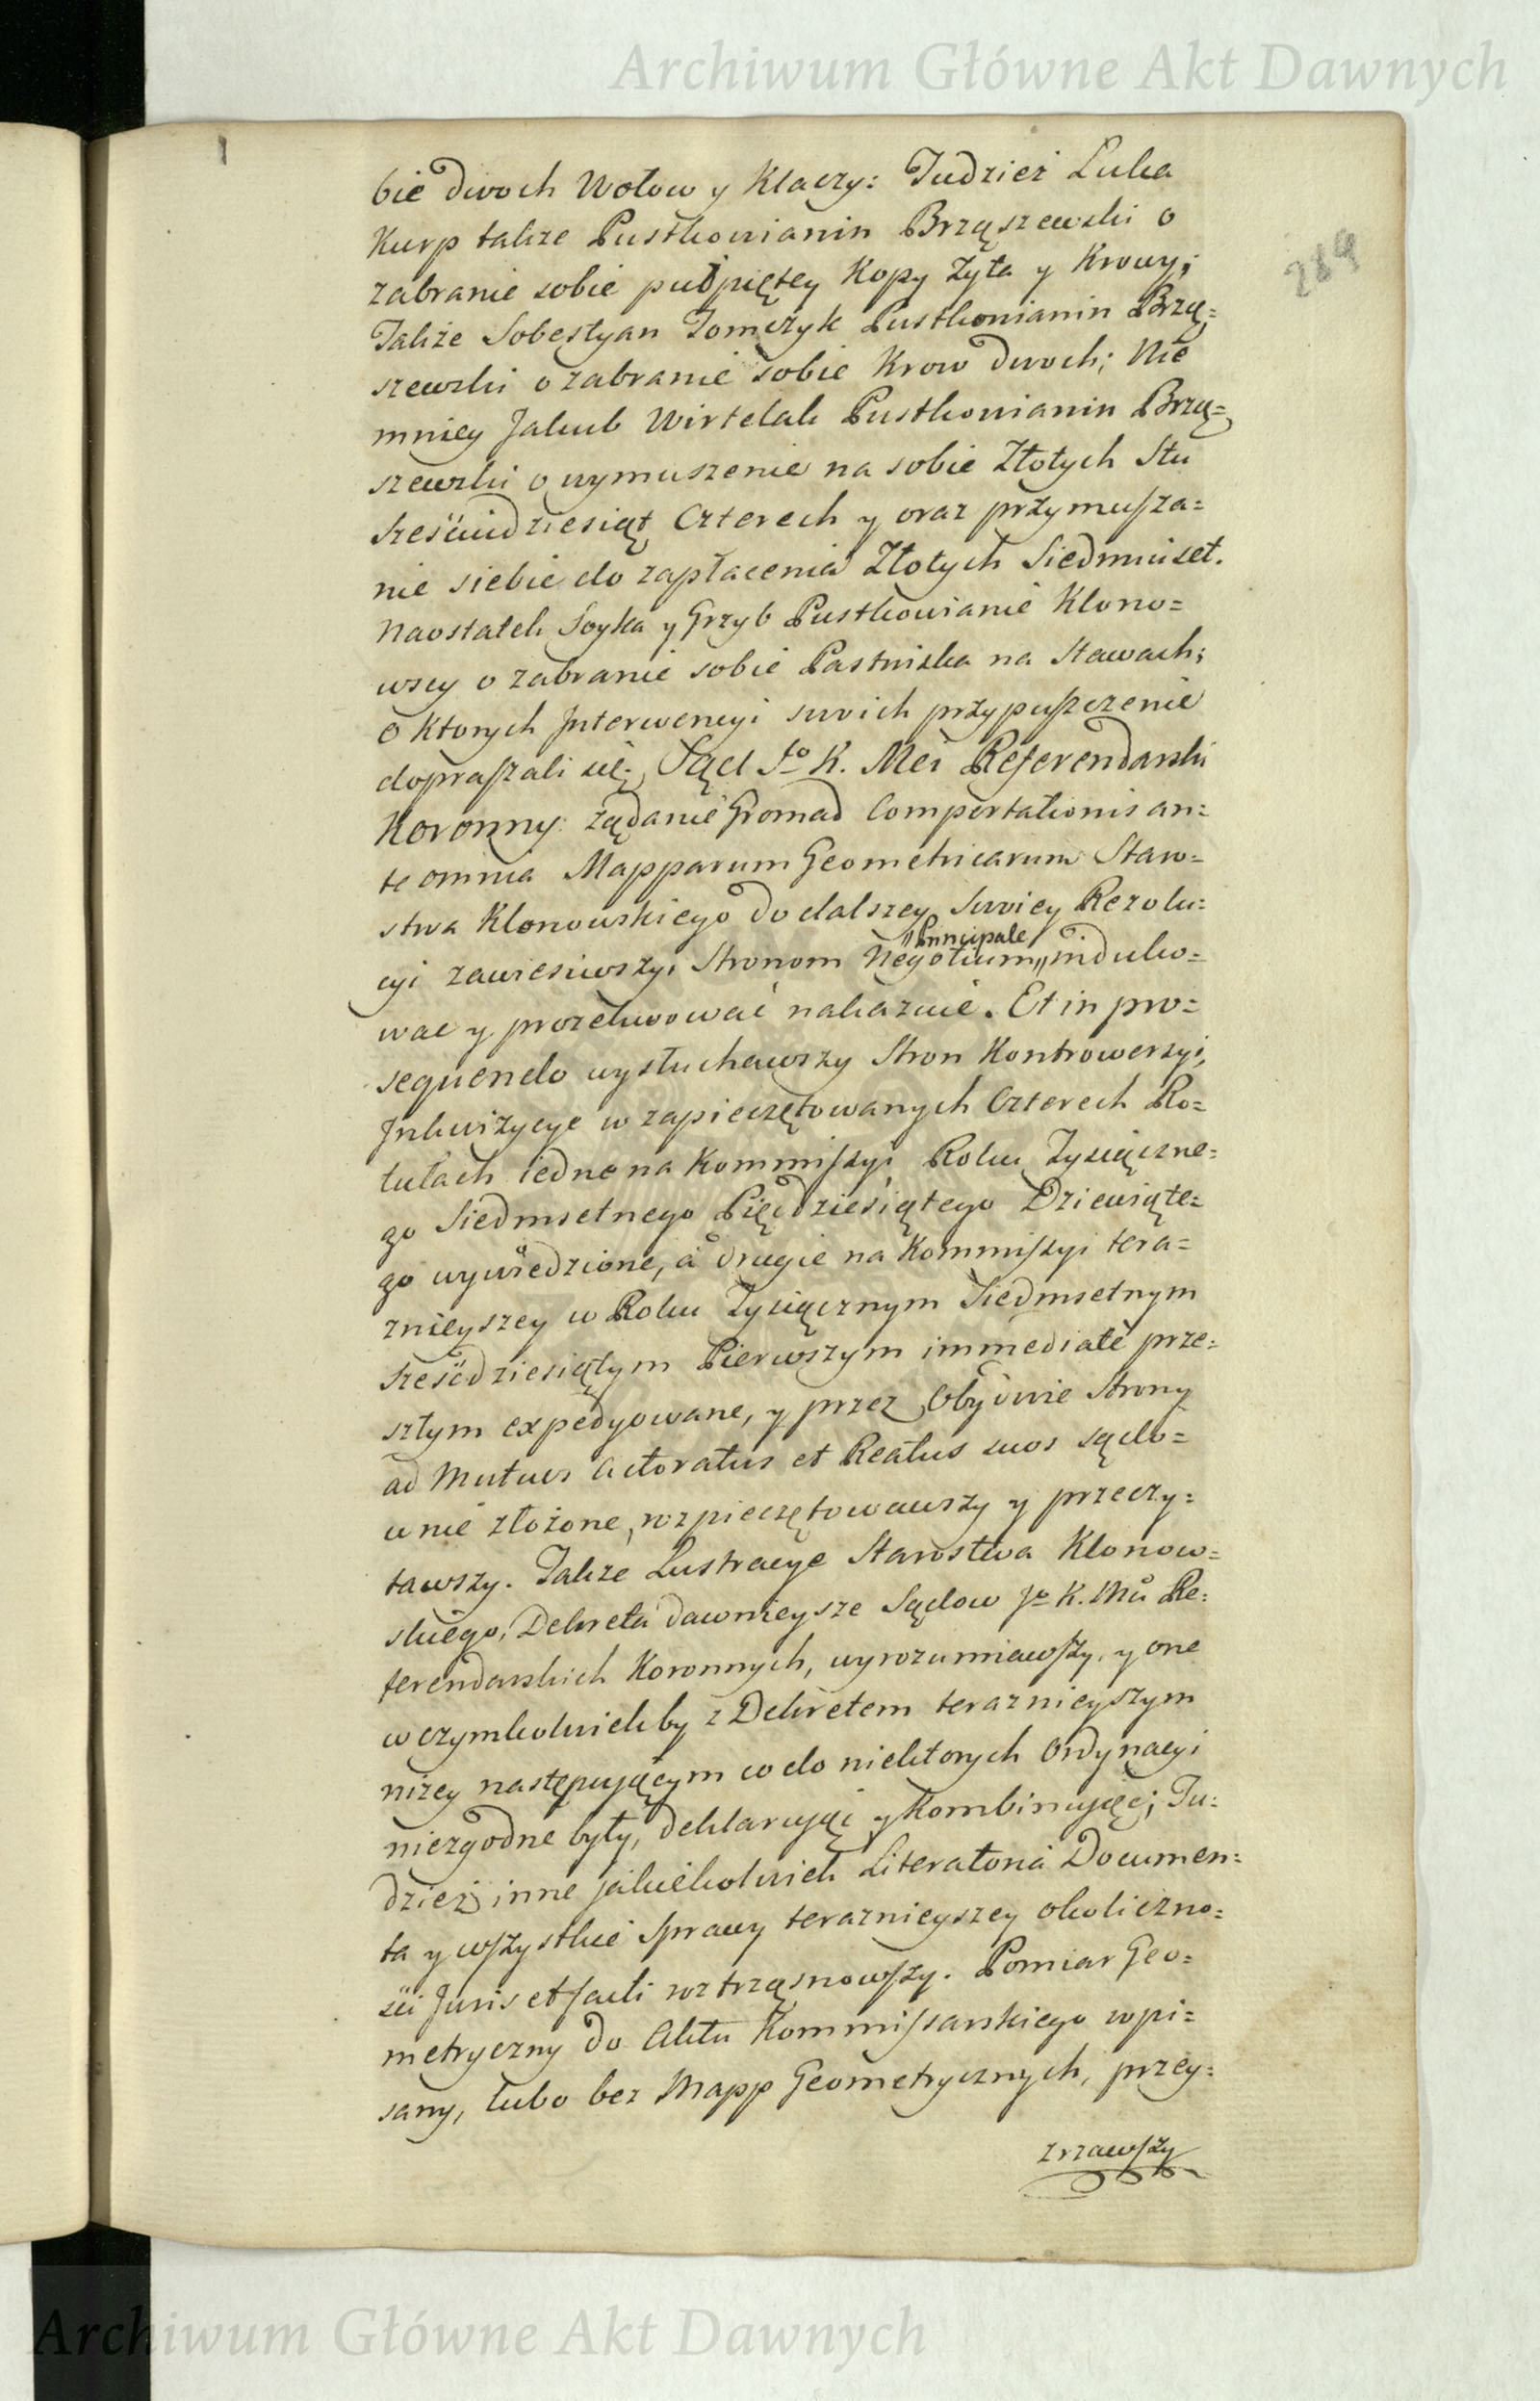 Archiwum Główne Akt Dawnych
289
bie dwoch Wołow y Klaczy: Tudzież Luka
Kurp także Pustkowianin Brząszewski o
zabranie sobie pułpiętey Kopy Zyta y Krowy;
Także Sobestyan Tomczyk Pustkowianin Brzą=
szewski o zabranie sobie Krow dwoch; Nie
mniey Jakub Wirtelak Pustkowianin Brzą=
szewski o wymuszenie na sobie Złotych Stu
sześciudziesiąt Czterech y oraz przymusza=
nie siebie do zapłacenia Złotych Siedmiuset.
Naostatek Soyka y Grzyb Pustkowianie Klono=
wscy o zabranie sobie Pastwiska na Stawach;
o Ktorych Interwencyi swoich przypuszczenie
dopraszali się; Sąd Jo K. Mci Referendarski
Koronny: żądanie Gromad Comportationis an=
te omnia Mapparum Geometricarum Staro=
stwa Klonowskiego do dalszey swoiey Rezolu=
cyi zawiesiwszy, Stronom Negotium "Principale" induko=
wac y prozekwować nakazuie. Et in pro=
sequendo wysłuchawszy Stron Kontrowersyi,
Inkwizycye w zapieczętowanych Czterech Ro=
tułach iedne na Kommiszyi Roku Tysiączne=
go Siedmsetnego Pięćdziesiątego Dziewiąte=
go wywiedzione, a drugie na Kommiszyi tera=
znieyszey w Roku Tysiącznym Siedmsetnym
sześćdziesiątym Pierwszym immediate prze=
szłym expedyowane, y przez Obydwie Strony
ad Mutuos Actoratus et Reatus suos sądo=
wnie złożone, rozpieczętowawszy y przeczy=
tawszy. Także Lustracye Starostwa Klonow=
skiego, Dekreta dawnieysze Sądow Jo K. Mci Re=
ferendarskich Koronnych, wyrozumiawszy, y one
w czymkolwiekby z Dekretem teraznieyszym
niżey następuiącym co do niektorych Ordynacyi
niezgodne były, deklaruiąc y Kombinuiąc; Tu=
dzież inne jakiekolwiek Literatoria Documen=
ta y wszystkie sprawy teraznieyszey okoliczno=
ści Juris et facti roztrząsnowszy. Pomiar Geo=
metryczny do Aktu Kommissarskiego wpi=
sany, lubo bez Mapp Geometrycznych, przey=
zrzawszy
Archiwum Główne Akt Dawnych